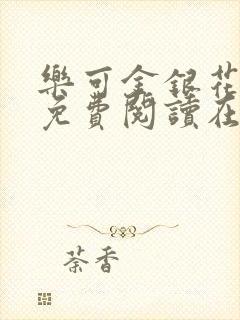 樂可金銀花
免費閱讀在
荼香